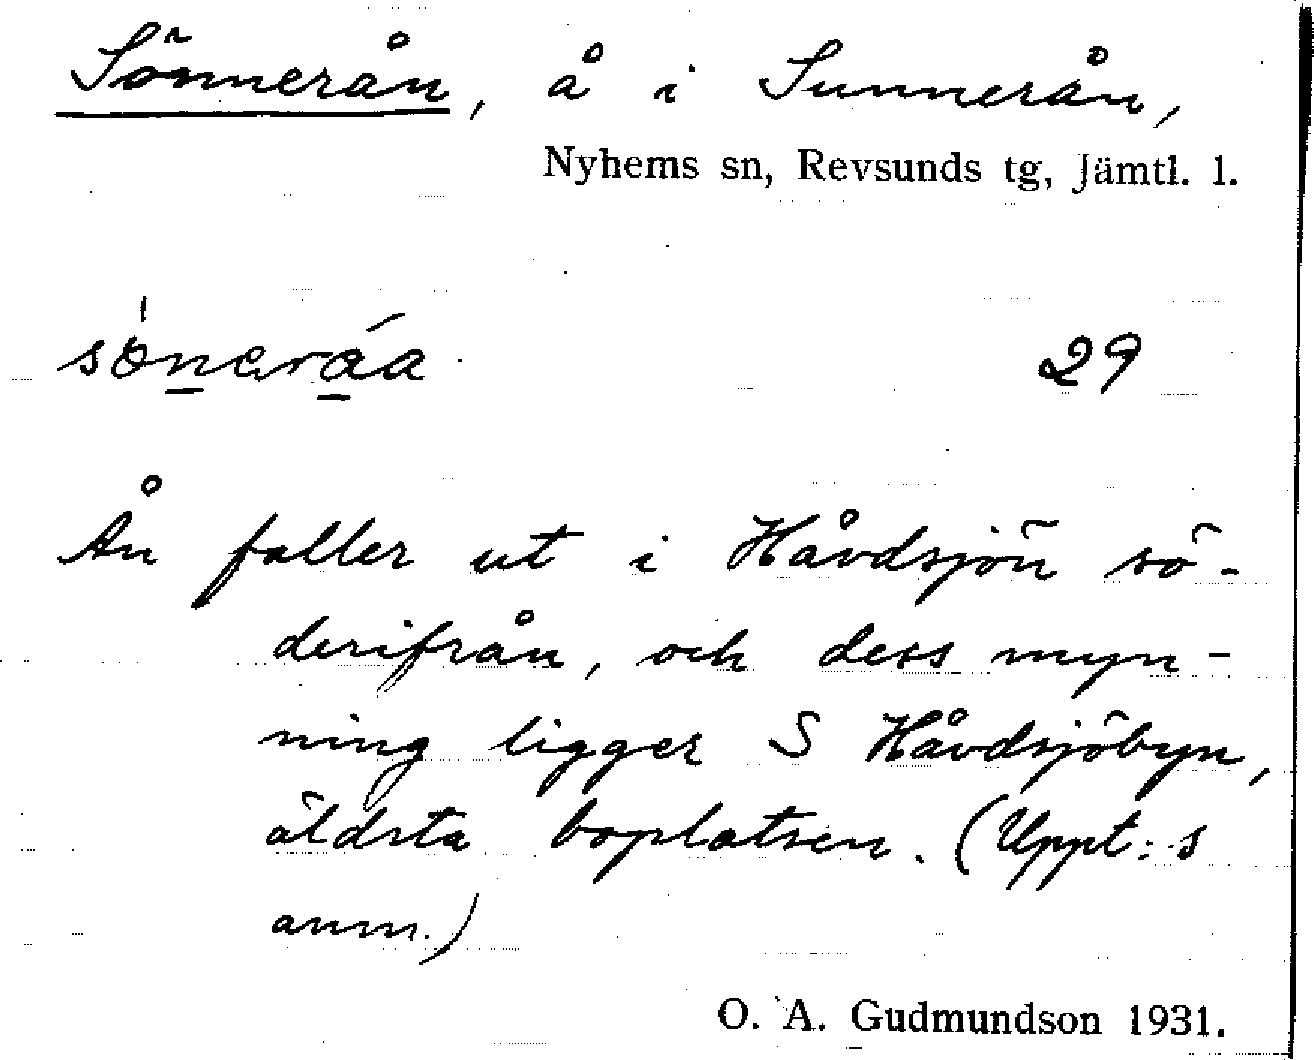 Sönnerån, å i Sunnerån,
Nyhems sn, Revsunds tg, Jämtl. l.
29
Ån faller ut i Håvdsjön sö-
derifrån, och dess myn-
ning ligger S Håvdsjöbyn,
äldsta boplatsen. (Uppt:s
anm.)
O. A. Gudmundson 1931.